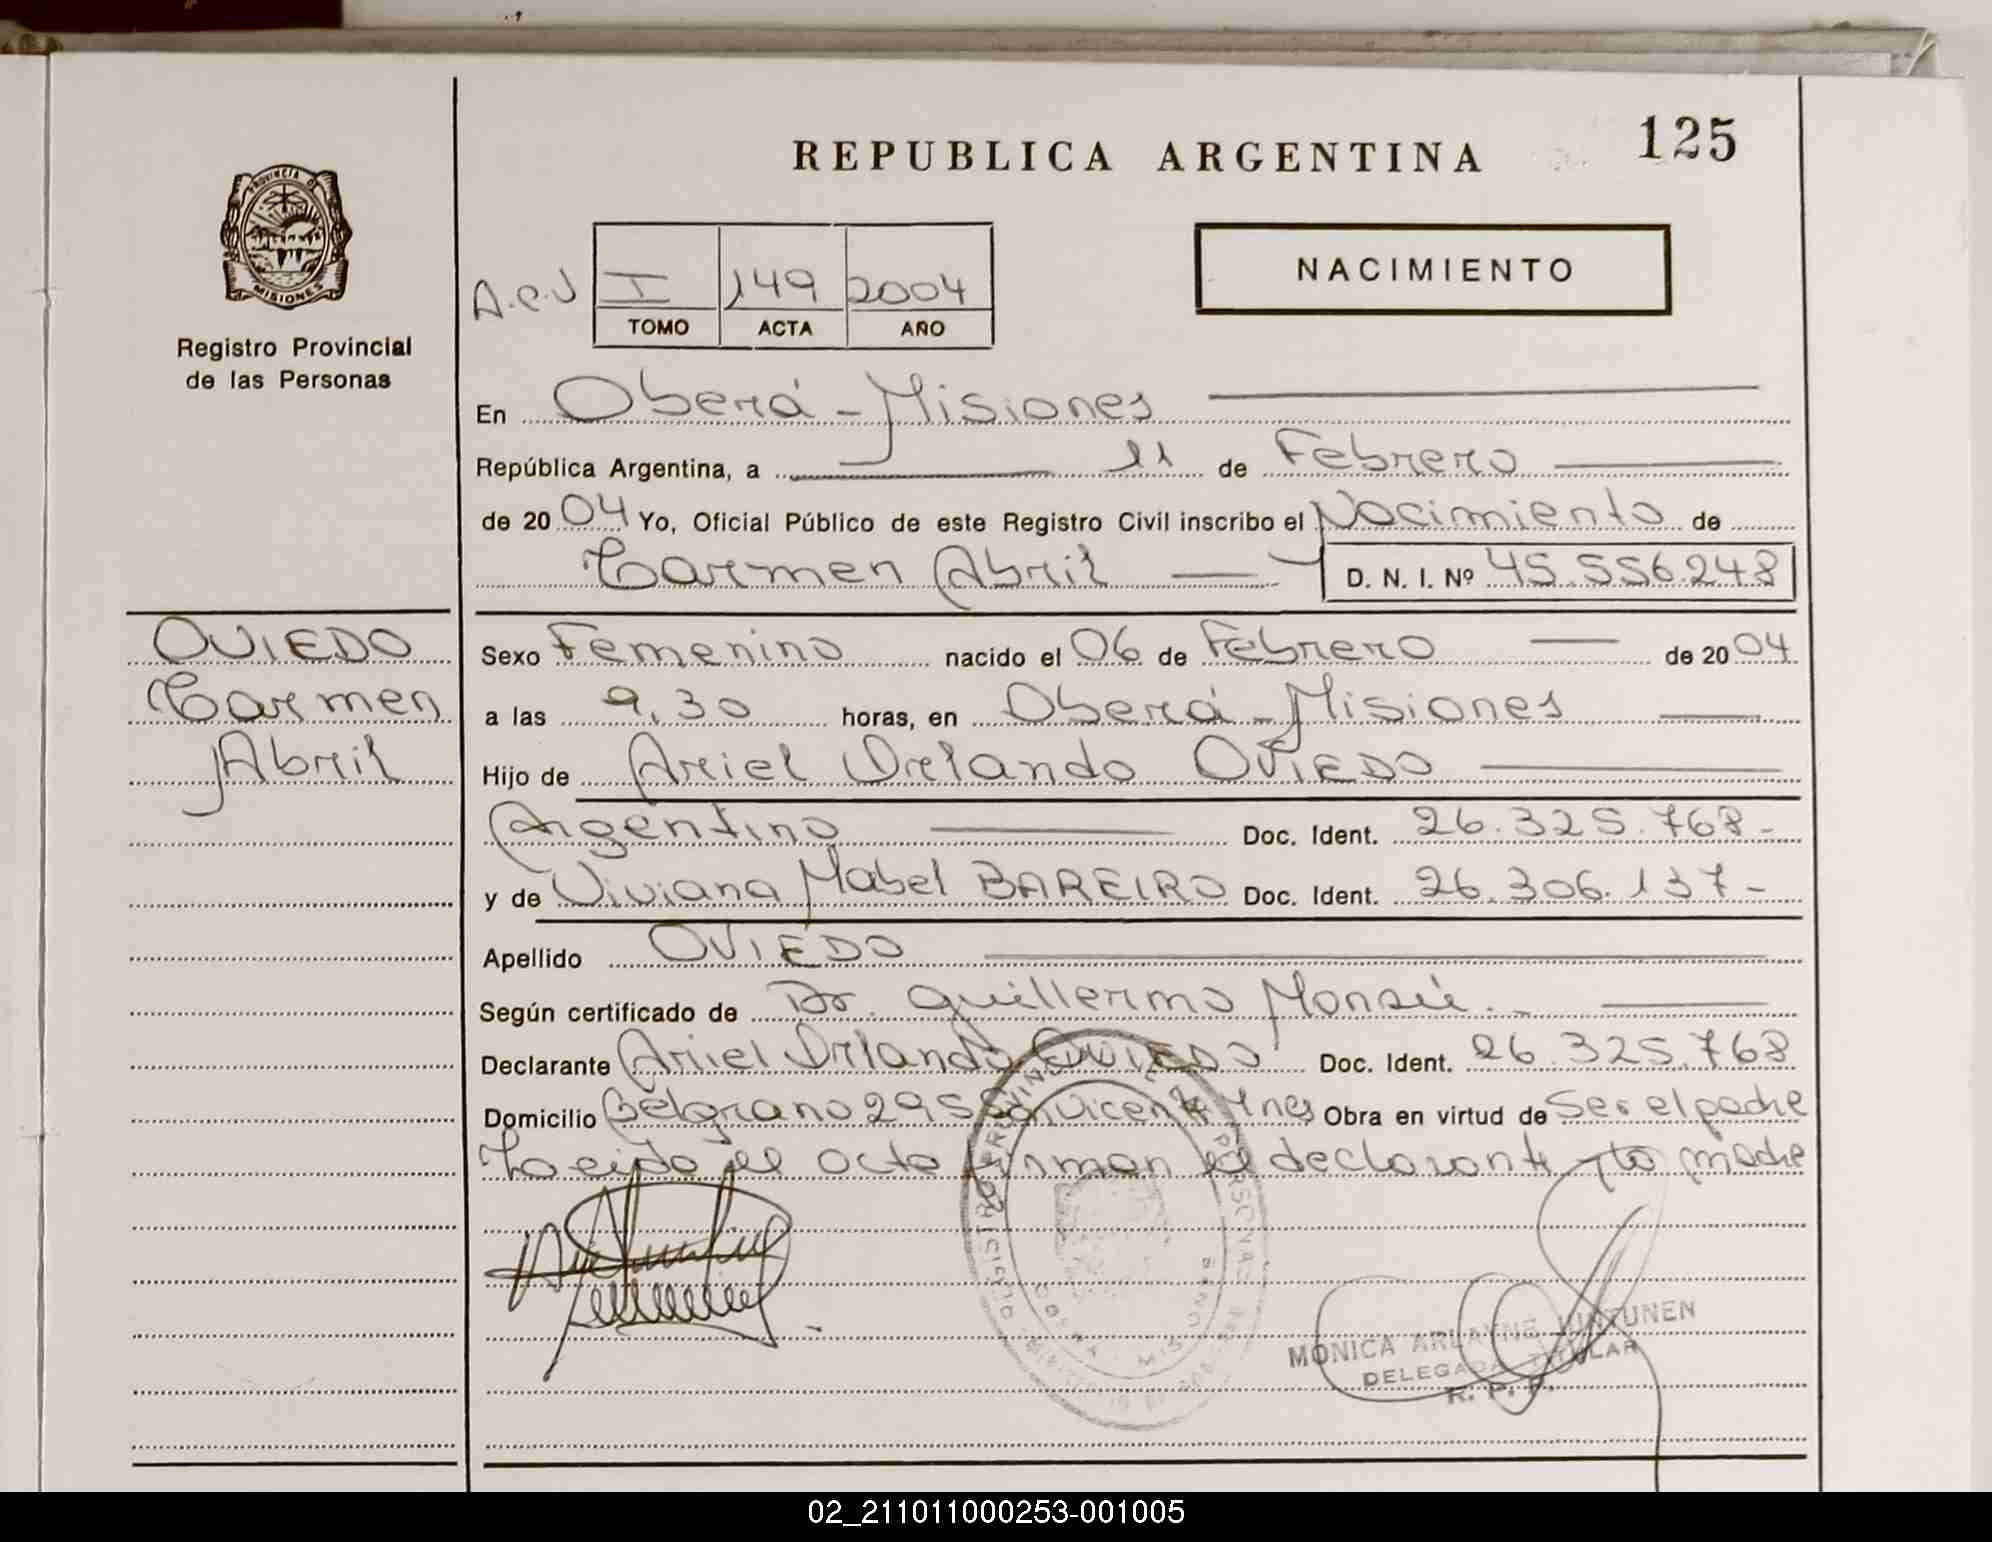 REPUBLICA ARGENTINA
125
PROVINCIA DE
MISIONES
Registro Provincial
de las Personas
A.C.V
I 149 2004
TOMO ACTA AÑO
NACIMIENTO
En Oberá - Misiones
República Argentina, a 11 de Febrero
de 2004 Yo, Oficial Público de este Registro Civil inscribo el Nacimiento de
Carmen Abril D. N. I. Nº 45.556.248
OVIEDO
Carmen
Abril
Sexo Femenino nacido el 06 de Febrero de 2004
a las 9,30 horas, en Oberá - Misiones
Hijo de Ariel Orlando OVIEDO
Argentino Doc. Ident. 26.325.768-
y de Viviana Mabel BAREIRO Doc. Ident. 26.306.137-
Apellido OVIEDO
Según certificado de Dr. Guillermo Monsú.
Declarante Ariel Orlando OVIEDO Doc. Ident. 26.325.768
Domicilio Belgrano 295 San Vicente Mnes Obra en virtud de Ser el padre
Leida el acta firman el declarante y la madre
MONICA ARLAYNE
DELEGADA TITULAR
R. P. P.
02_211011000253-001005